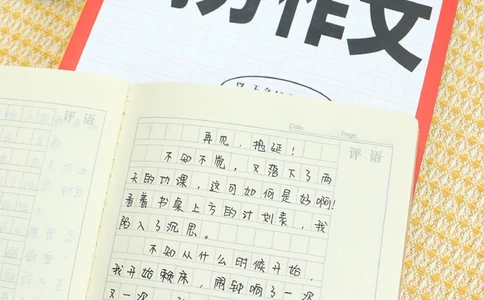 作文
评语
Date
Page
评语
再见，拖延！
不知不觉，又落下了两
天的功课，这可如何是好啊！
看着书桌上方的计划表，我
陷入了沉思。
不知从什么时候开始，
我开始赖床，闹钟响了一遍
又一遍